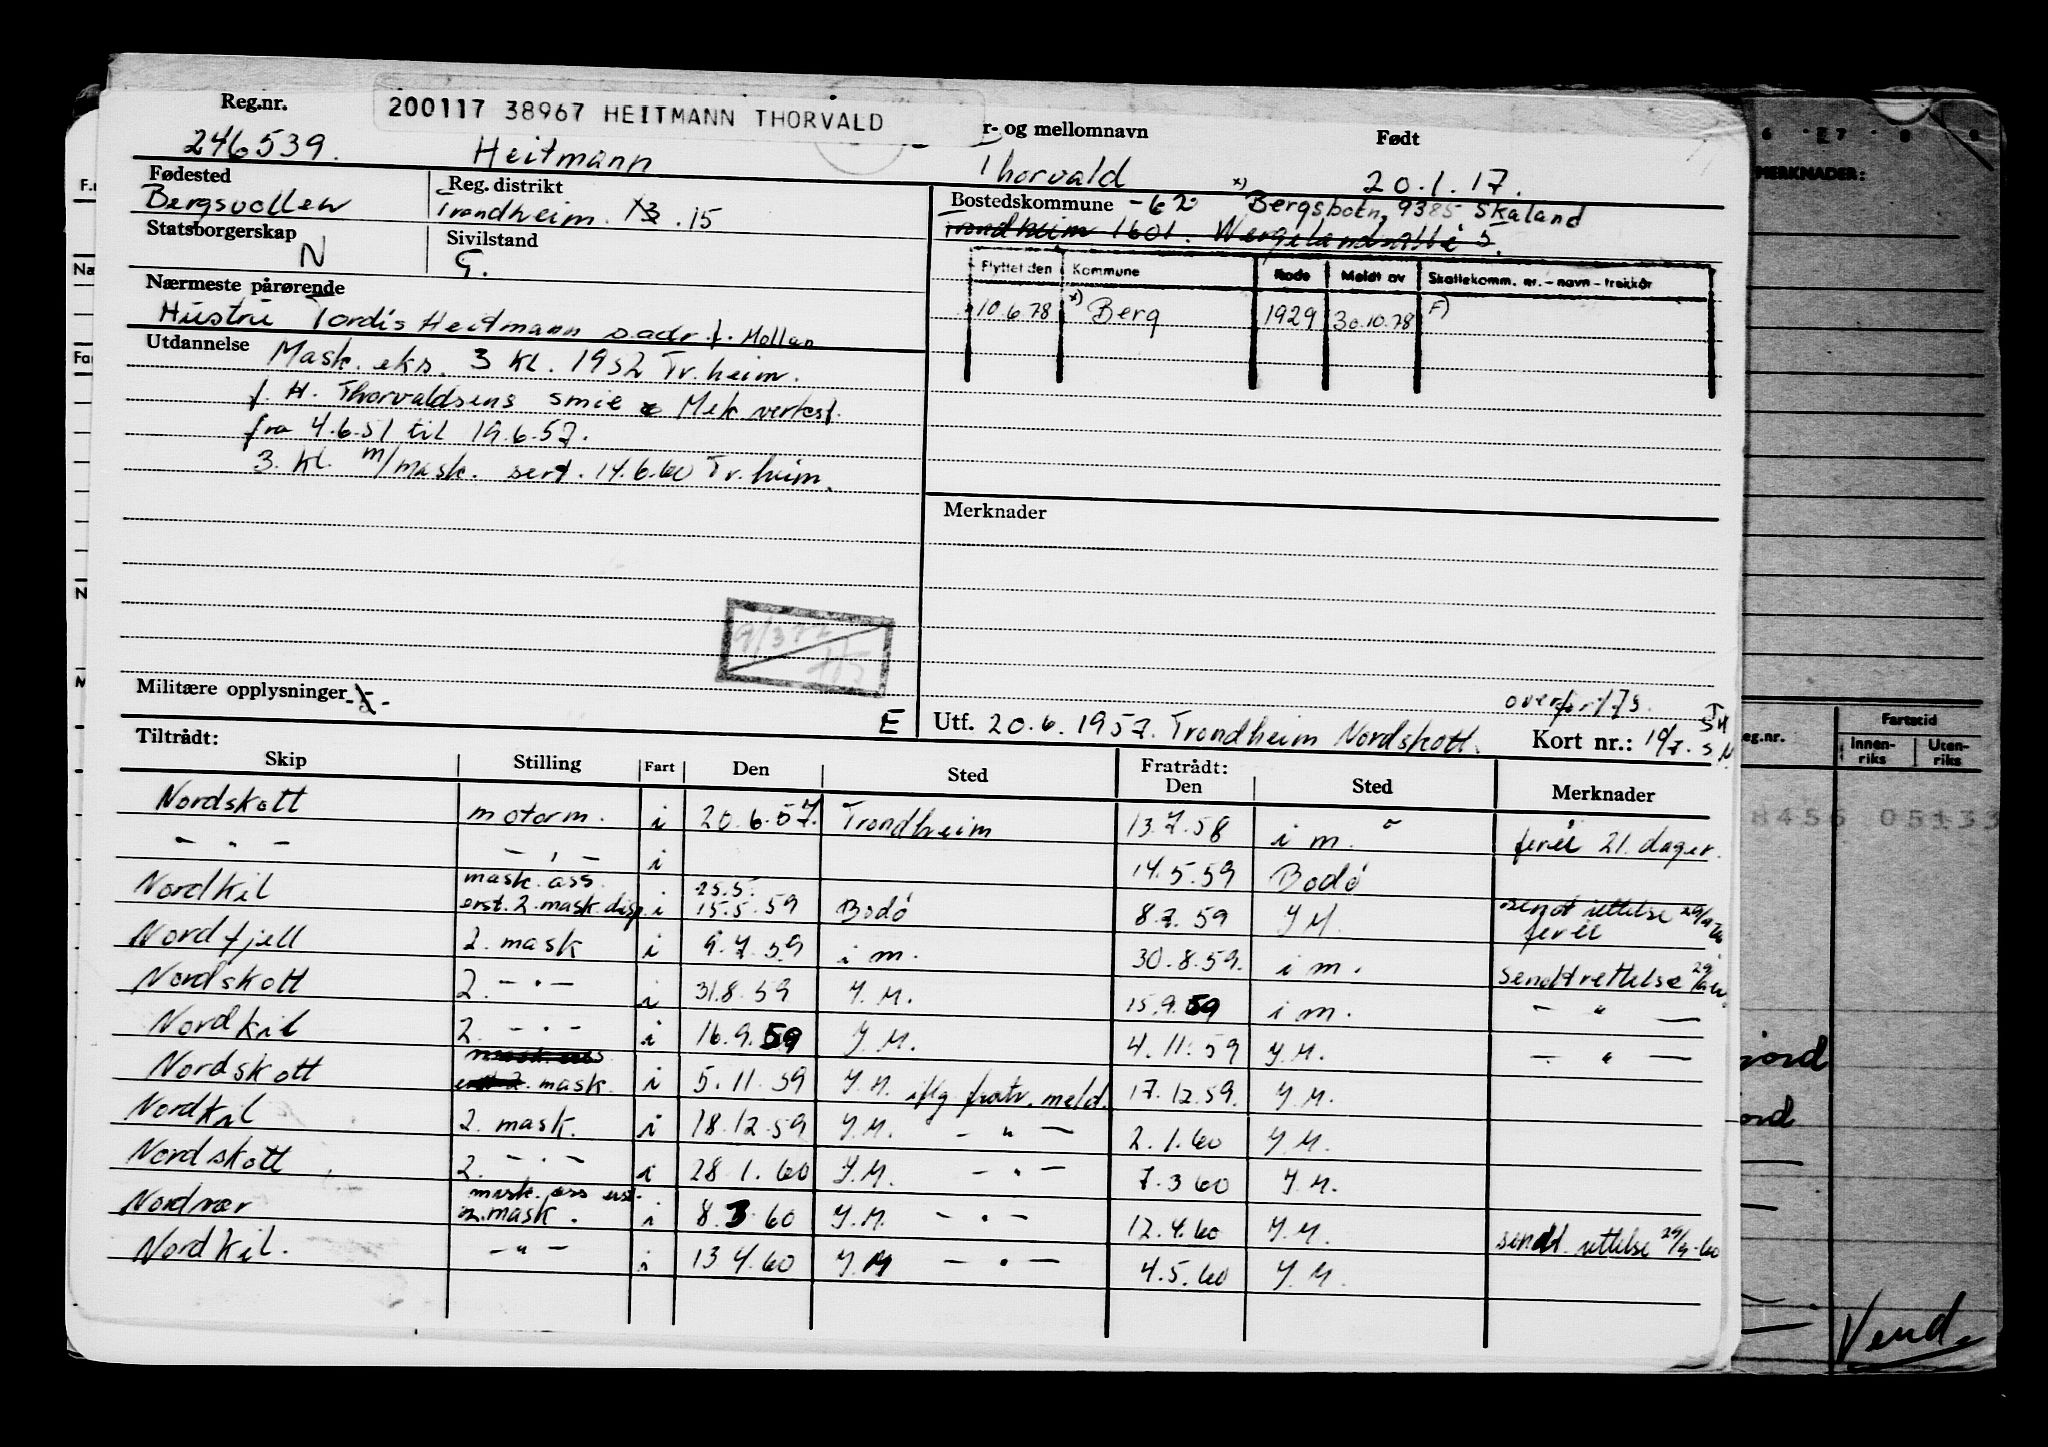 Reg.nr.
200117 38967 HEITMANN THORVALD
r- og mellomnavn
Født
246539.
Heitmann
Thorvald
20.1.17.
Fødested
Bergsvollen
Reg. distrikt
Trondheim. 13. 15
Bostedskommune -62 x) Bergsbotn, 9385 Skaland
Trondheim 1601.
Statsborgerskap
N
Sivilstand
G.
Flyttet den
Kommune
Kode
Meldt av
Skattekomm. nr. - navn - trekkår
10.6.78
x) Berg
1929
30.10.78
F)
Nærmeste pårørende
Hustru Tordis Heitmann s.adr. f. Mollan
Utdannelse
Mask. eks. 3 Kl. 1952 Tr.heim.
f. H. Thorvaldsens smie & Mek verkst.
fra 4.6.51 til 19.6.57.
3. Kl. m/mask. sert. 14.6.60 Tr.heim.
Merknader
Militære opplysninger
E
Utf. 20.6.1957. Trondheim Nordskott.
overført 73.
Kort nr.:
Tiltrådt:
Fratrådt:
Skip
Stilling
Fart
Den
Sted
Den
Sted
Merknader
Nordskott motorm. i 20.6.57. Trondheim 13.7.58 i m. ferie 21. dager.
- " - - " - i 14.5.59 Bodø
Nordkil mask. ass. erst. 2. mask. disp. i 25.5. 15.5.59 Bodø 8.7.59 I M. sendt rettelse ferie
Nordfjell 2. mask i 9.7.59 i m. 30.8.59. i m. sendt rettelse
Nordskott 2. - " - i 31.8.59 I.M. 15.9.59 i m. - " -
Nordkil 2. - " - i 16.9.59 I.M. 4.11.59 I.M. - " -
Nordskott mask. ass erst 2. mask. i 5.11.59 I.M. iflg fratr. meld. 17.12.59. I.M.
Nordkil 2. mask. i 18.12.59 I.M. - " - 2.1.60 I.M.
Nordskott 2. - " - i 28.1.60 I.M. - " - 7.3 60 I.M.
Nordvær mask. ass erst. 2. mask. i 8.3.60 I.M. - " - 12.4.60 I.M. sendt. rettelse
Nordkil. - " - i 13 4.60 I.M - " - 4.5.60 I.M.
MERKNADER:
Fartstid
eg.nr.
Innen-
riks
Uten-
riks
8456 05133
jord
ord
Vend